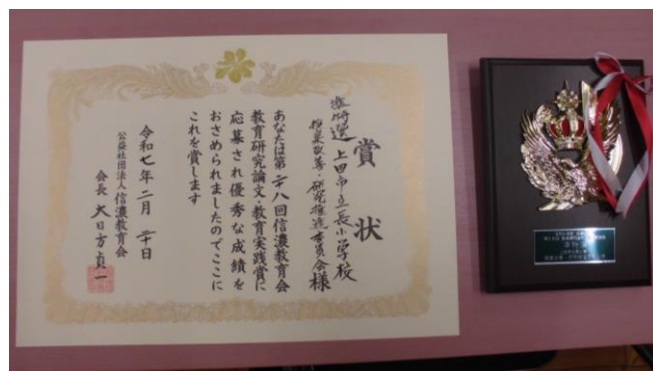 賞状
準特選 上田市立長小学校
授業改善・研究推進委員会様
あなたは第二十八回信濃教育会
教育研究論文・教育実践賞に
応募され優秀な成績を
おさめられましたのでここに
これを賞します
令和七年二月二十日
公益社団法人信濃教育会
会長 大日方貞一